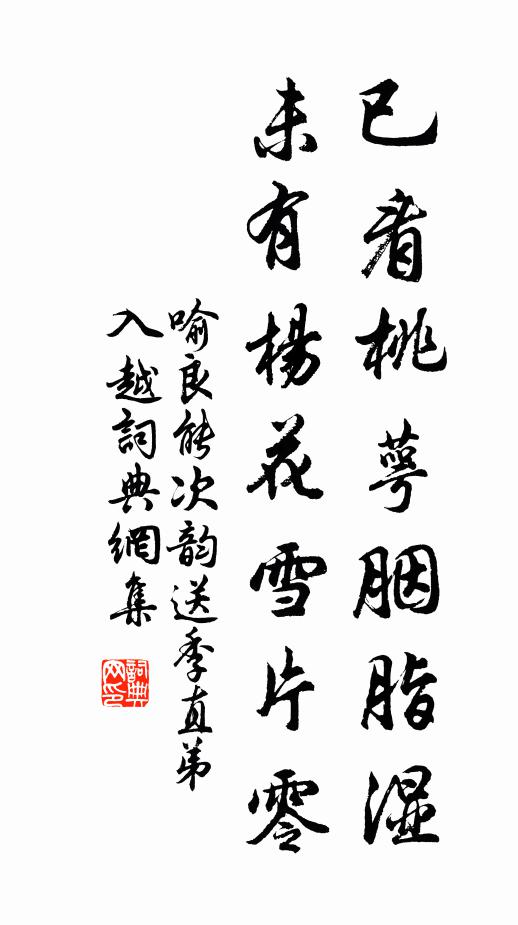 已看桃萼胭脂湿
未有楊花雪片零
喻良能次韵送季直弟
入越詞典網集
詞典网印